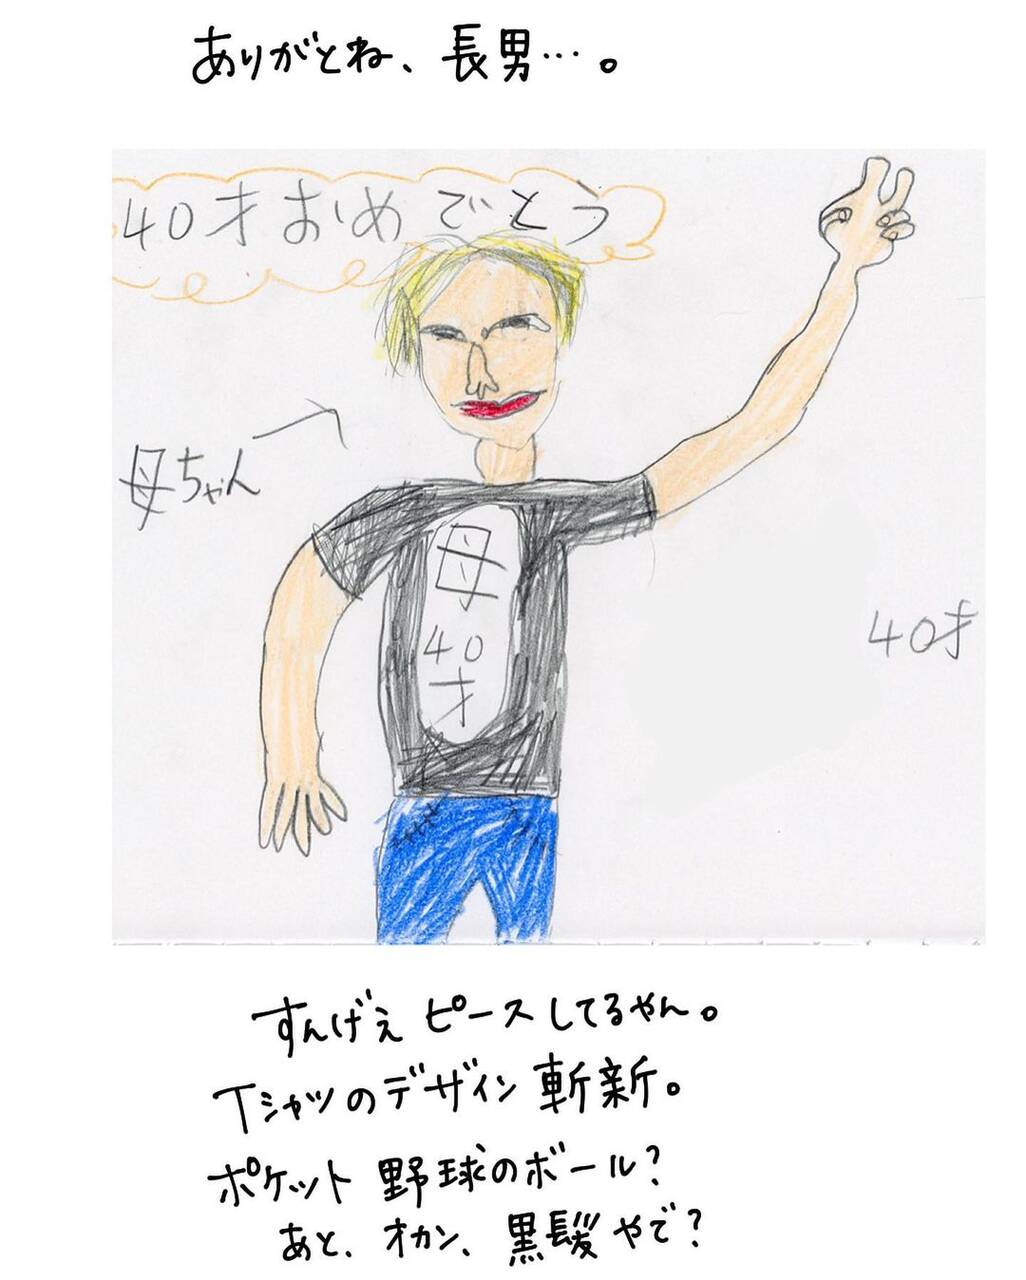 ありがとね、長男…。
40才おめでとう
母ちゃん
母
40
才
40才
すんげぇ ピースしてるやん。
Tシャツのデザイン 斬新。
ポケット 野球のボール?
あと、オカン、黒髪やで?